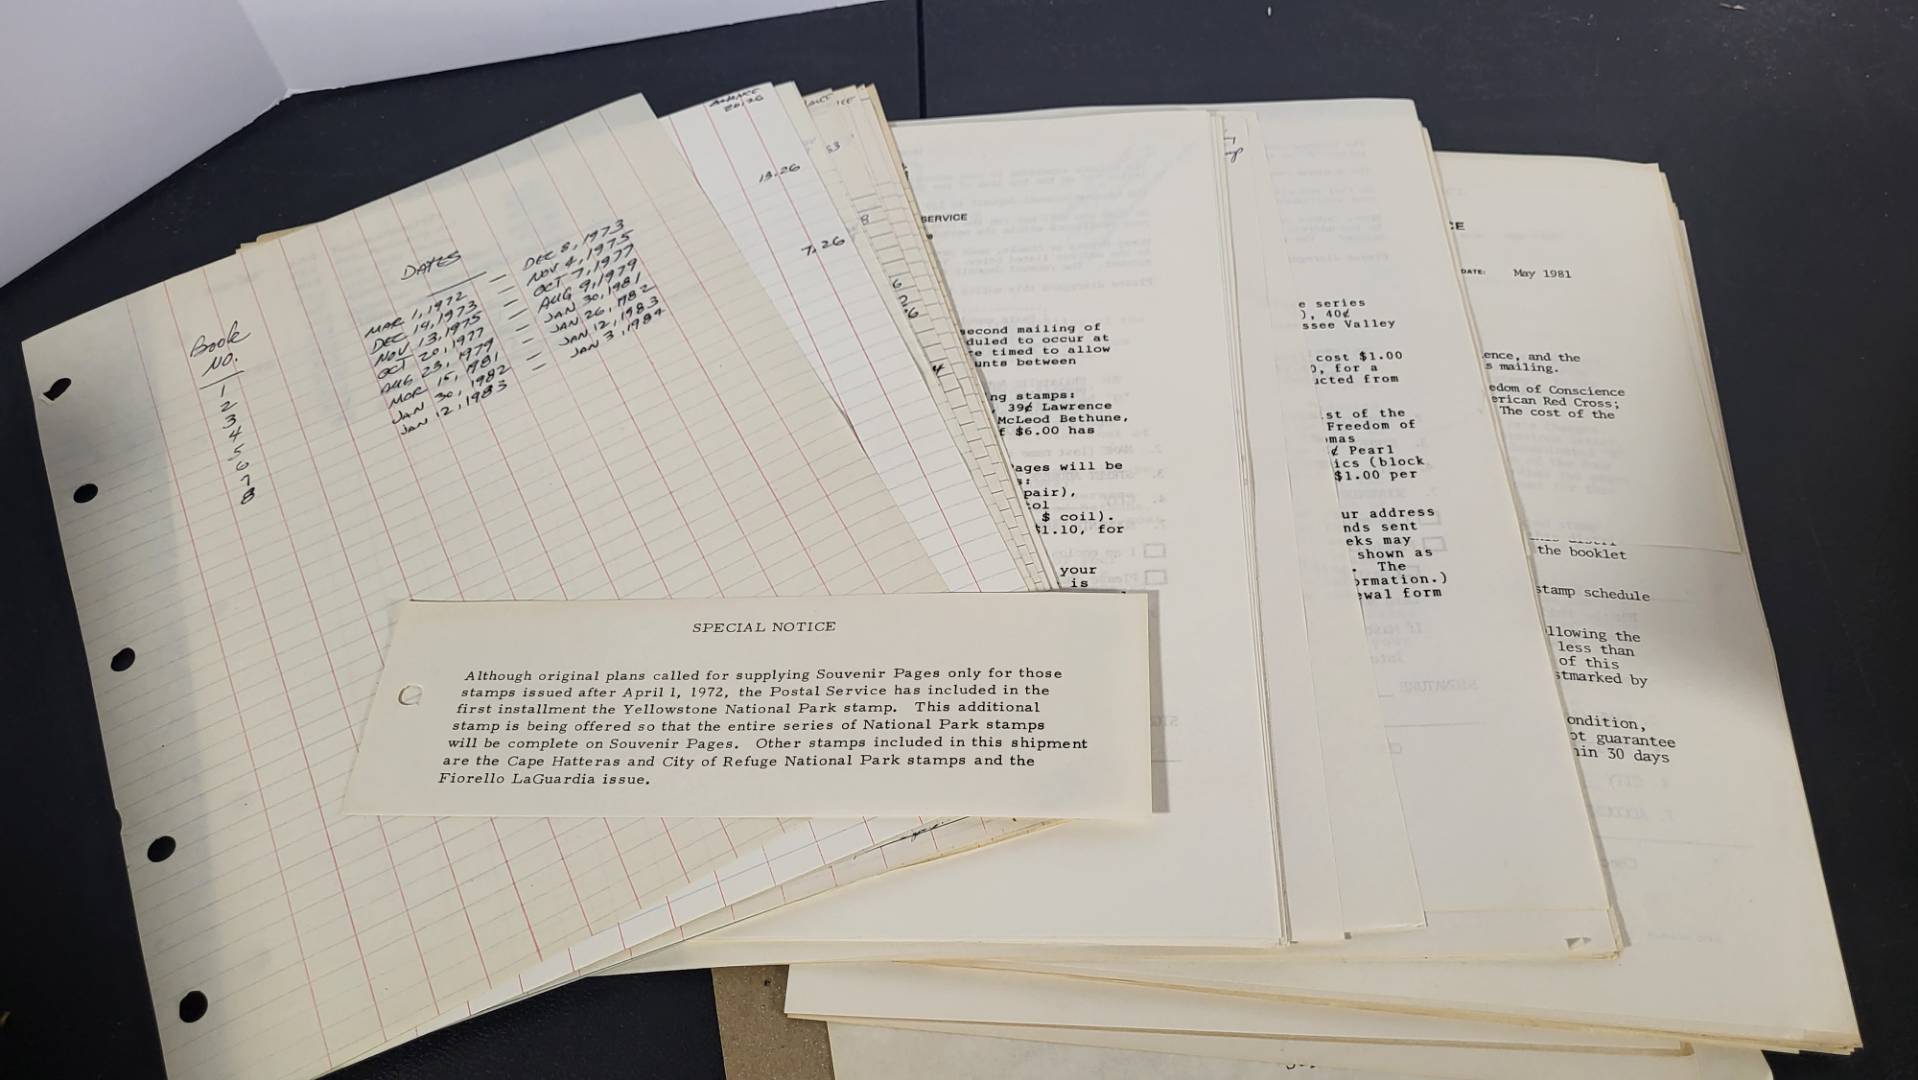 Book
NO.
1
2
3
4
5
6
7
8
DATES
MAR 1, 1972 — DEC 8, 1973
DEC 14, 1973 — NOV 4, 1975
NOV 13, 1975 — OCT 7, 1977
OCT 20, 1977 — AUG 9, 1979
AUG 23, 1979 — JAN 30, 1981
MAR 15, 1981 — JAN 26, 1982
JAN 30, 1982 — JAN 12, 1983
JAN 12, 1983 — JAN 3, 1984
BALANCE
20.26
13.26
7.26
SPECIAL NOTICE
Although original plans called for supplying Souvenir Pages only for those
stamps issued after April 1, 1972, the Postal Service has included in the
first installment the Yellowstone National Park stamp. This additional
stamp is being offered so that the entire series of National Park stamps
will be complete on Souvenir Pages. Other stamps included in this shipment
are the Cape Hatteras and City of Refuge National Park stamps and the
Fiorello LaGuardia issue.
SERVICE
second mailing of
duled to occur at
e timed to allow
unts between
ng stamps:
, 39¢ Lawrence
McLeod Bethune,
f $6.00 has
ages will be
s:
pair),
tol
$ coil).
$1.10, for
your
is
e series
), 40¢
ssee Valley
cost $1.00
0, for a
ucted from
st of the
Freedom of
omas
¢ Pearl
ics (block
$1.00 per
ur address
nds sent
eks may
shown as
. The
ormation.)
ewal form
CE
DATE: May 1981
ence, and the
s mailing.
edom of Conscience
erican Red Cross;
The cost of the
the booklet
stamp schedule
llowing the
less than
of this
stmarked by
ondition,
ot guarantee
hin 30 days